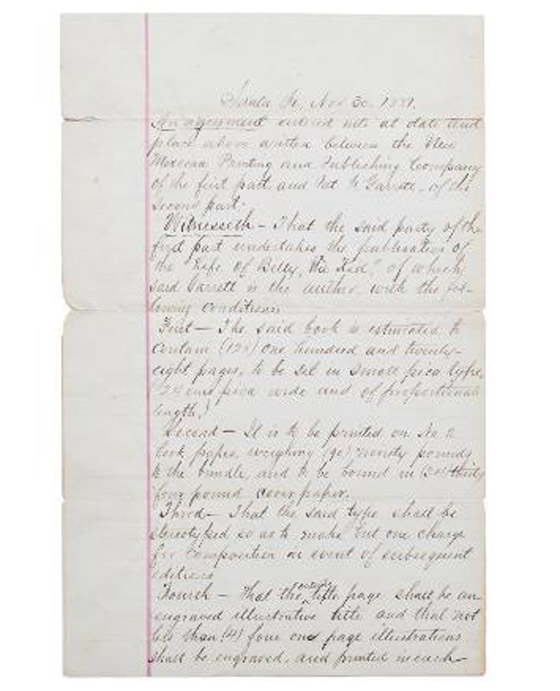 Santa Fe, Nov 30, 1881.
An agreement entered into at date and
place above written between the New
Mexican Printing and Publishing Company
of the first part and Pat F. Garrett - of the
second part.
Witnesseth - That the said party of the
first part undertakes the publication of
the "Life of Billy, the Kid," of which
said Garrett is the author, with the fol-
lowing conditions
First - The said book is estimated to
contain (128) one hundred and twenty-
eight pages, to be set in small pica type,
(24 ems pica wide and of proportionate
length.)
Second - It is to be printed on No
book paper, weighing (90) ninety pounds
to the bundle, and to be bound in thirty
four pound cover paper.
Third - That the said type shall be
stereotyped so as to make but one charge
for composition in event of subsequent
editions
Fourth - That the outside title page shall be an
engraved illustrative title and that not
less than (4) four one page illustrations
shall be engraved, and printed in each